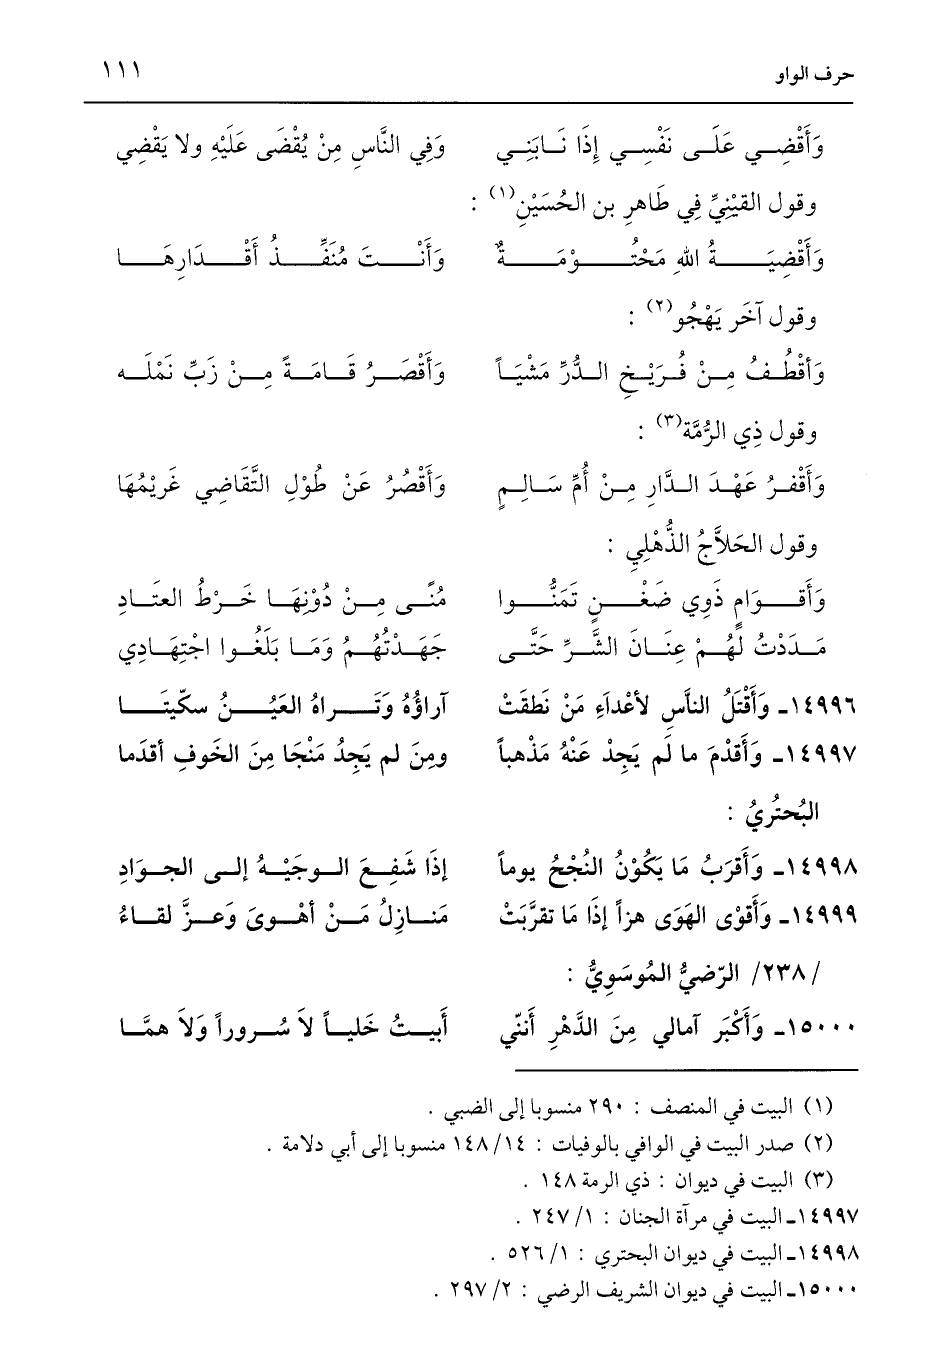 حرف الواو ١١١
وَأَقْضِي عَلَى نَفْسِي إِذَا نَابَنِي وَفِي النَّاسِ مِنْ يُقْضَى عَلَيْهِ ولا يَقْضِي
وقول القيْنِيِّ فِي طَاهرِ بن الحُسَيْنِ(١) :
وَأَقْضِيَةُ اللهِ مَحْتُوْمَةٌ وَأَنْتَ مُنَفِّذُ أَقْدَارِهَا
وقول آخَر يَهْجُو(٢) :
وَأقْطُفُ مِنْ فُرَيْخِ الدُّرِّ مَشْيَاً وَأَقْصَرُ قَامَةً مِنْ زَبِّ نَمْلَه
وقول ذِي الرُّمَّة(٣) :
وَأَقْفرُ عَهْدَ الدَّارِ مِنْ أُمِّ سَالِمٍ وَأَقْصُرُ عَنْ طُوْلِ التَّقَاضِي غَرِيْمُهَا
وقول الحَلاَّجُ الذُّهْلِي :
وَأَقوَامٍ ذَوِي ضَغْنٍ تَمَنُّوا مُنًى مِنْ دُوْنِهَا خَرْطُ العتَادِ
مَدَدْتُ لَهُمْ عِنَانَ الشَّرِّ حَتَّى جَهَدْتُهُمُ وَمَا بَلَغُوا اجْتِهَادِي
١٤٩٩٦ـ وَأَقْتَلُ النأَسِ لأعْداَءِ مَنْ نَطقَتْ آراؤُهُ وَتَراهُ العَيْنُ سكّيتَا
١٤٩٩٧ـ وَأَقدْمَ ما لَم يَجِدْ عَنْهُ مَذْهباً ومِنَ لم يَجِدُ مَنْجَا مِنَ الخَوفِ أقدَما
البُحتُريُ :
١٤٩٩٨ـ وَأَقرَبُ مَا يَكُوْنُ النُجْحُ يوماً إذَا شَفِعَ الوجَيْهُ إلى الجوَادِ
١٤٩٩٩ـ وَأَقوْى الهَوَى هزاً إذَا مَا تقرَّبَتْ مَنازِلُ مَنْ أهْوىَ وَعزَّ لقاءُ
/ ٢٣٨/ الرّضيُّ المُوسَوِيُّ :
١٥٠٠٠ـ وَأَكْبَر آمالي مِنَ الدَّهْرِ أَننّي أَبيتُ خَلياً لاَ سُروراً وَلاَ همَّا
(١) البيت في المنصف : ٢٩٠ منسوبا إلى الضبي .
(٢) صدر البيت في الوافي بالوفيات : ١٤٨/١٤ منسوبا إلى أبي دلامة .
(٣) البيت في ديوان : ذي الرمة ١٤٨ .
١٤٩٩٧ـ البيت في مرآة الجنان : ١/ ٢٤٧ .
١٤٩٩٨ـ البيت في ديوان البحتري : ١/ ٥٢٦ .
١٥٠٠٠ـ البيت في ديوان الشريف الرضي : ٢/ ٢٩٧ .